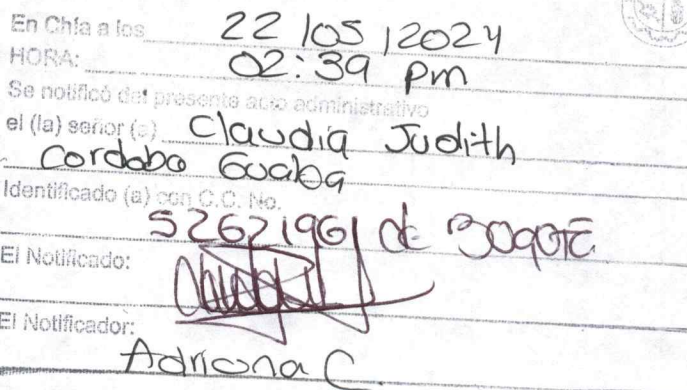 En Chía a los 22/05/2024
HORA: 02:39 pm
Se notificó del presente acto administrativo
el (la) señor (a) Claudia Judith
Cordoba Guaba
Identificado (a) con C.C. No.
52621961 de BOGOTÁ
El Notificado:
El Notificador:
Adriana C